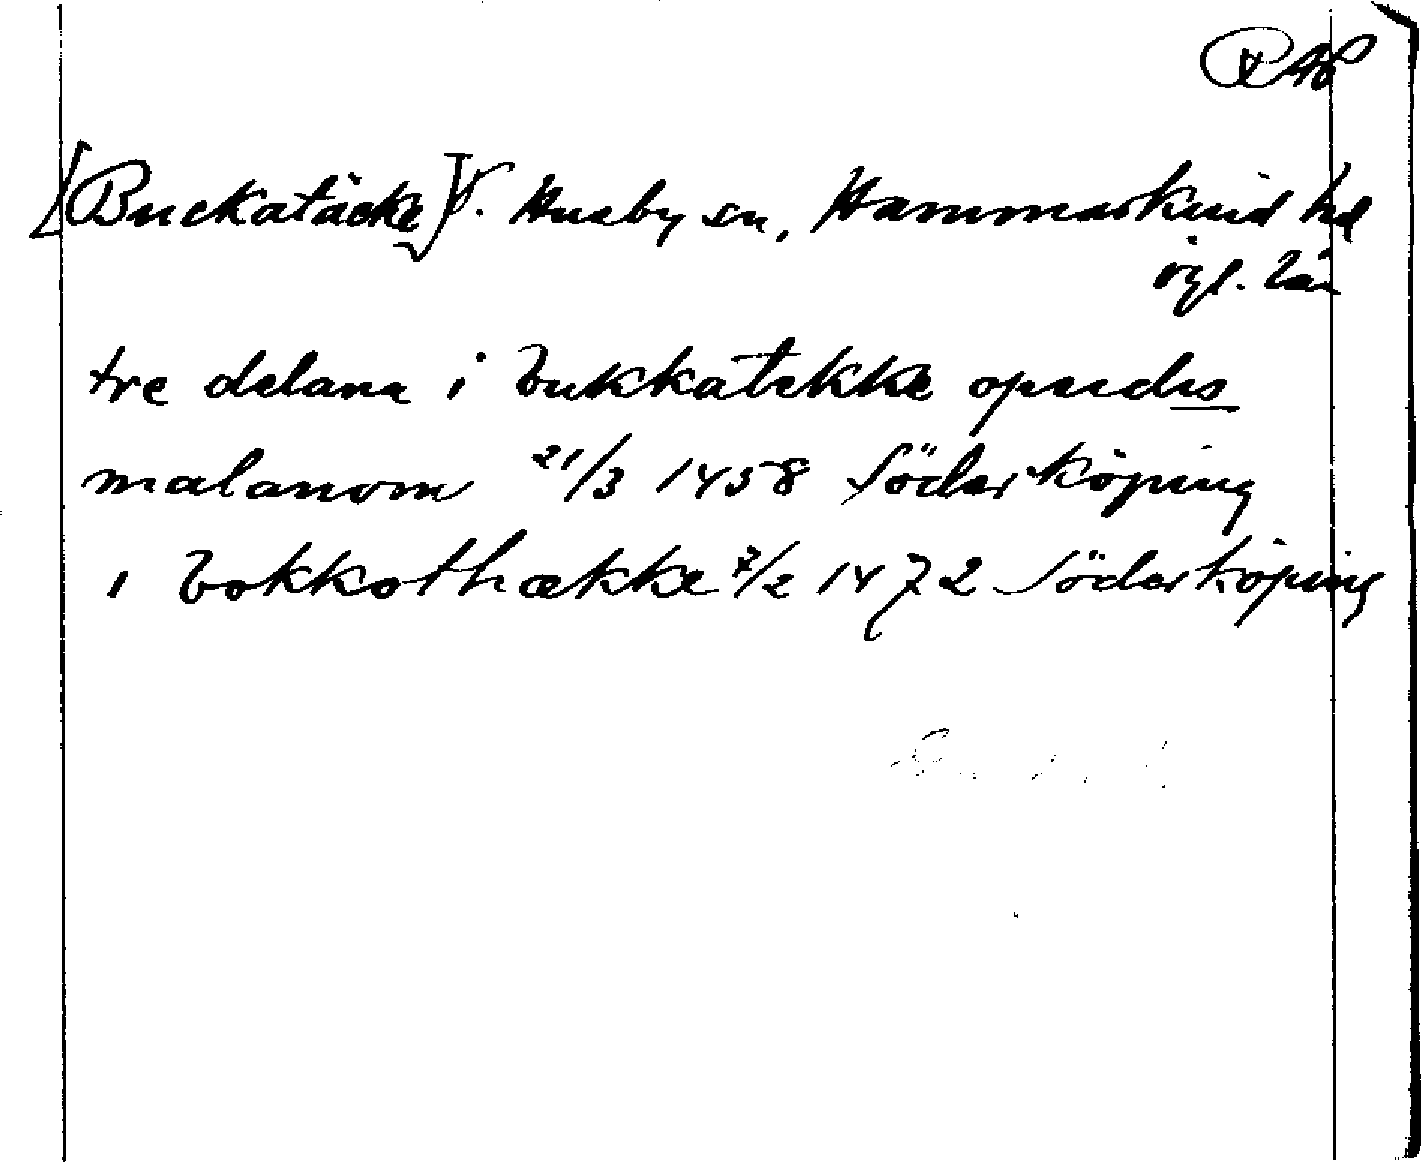 RAp
[Buckatäcke] V. Husby sn, Hammarkind hd
ögl. län
tre delana i bukkatekke opendes
malanom 21/3 1458 Söderköping
i bokkothække 7/2 1472 Söderköping